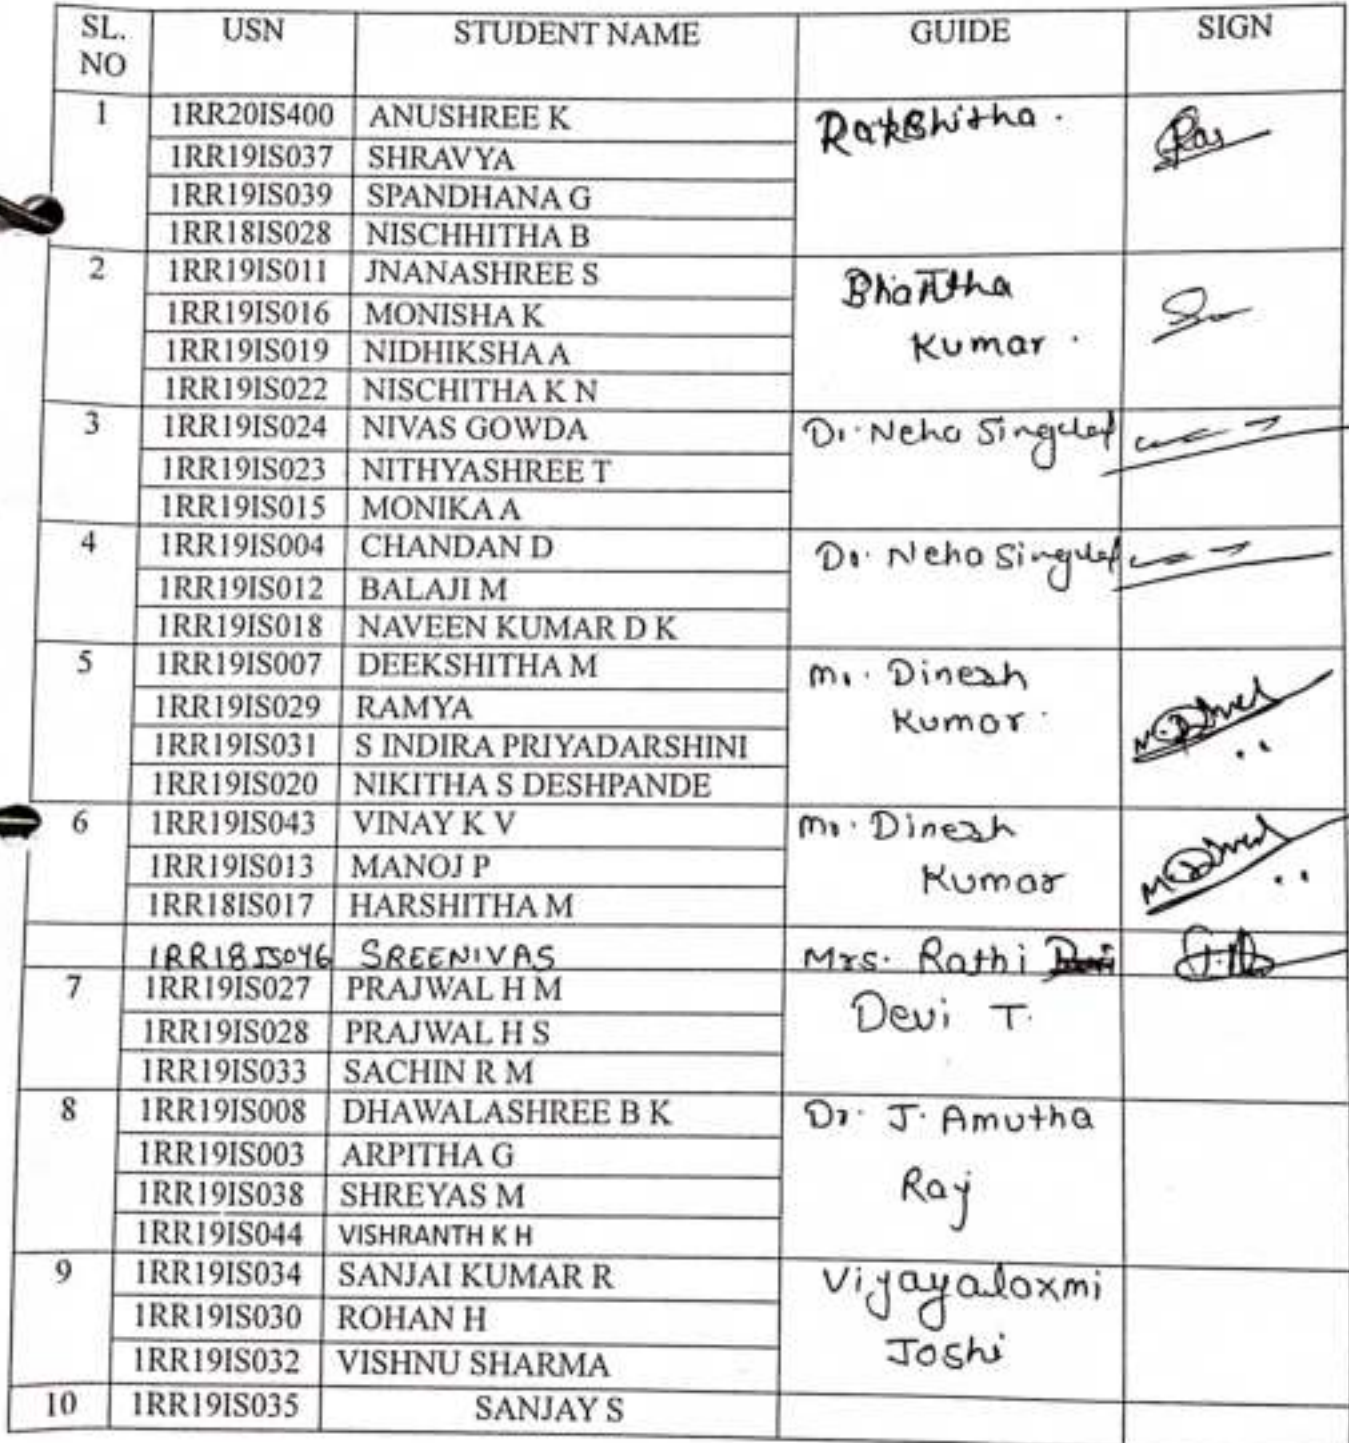 SL. NO USN STUDENT NAME GUIDE SIGN
1 1RR20IS400 ANUSHREE K Rakshitha.
1RR19IS037 SHRAVYA
1RR19IS039 SPANDHANA G
1RR18IS028 NISCHHITHA B
2 1RR19IS011 JNANASHREE S
1RR19IS016 MONISHA K Kumar.
1RR19IS019 NIDHIKSHA A
1RR19IS022 NISCHITHA K N
3 1RR19IS024 NIVAS GOWDA Dr. Neha Singhal
1RR19IS023 NITHYASHREE T
1RR19IS015 MONIKA A
4 1RR19IS004 CHANDAN D Dr. Neha Singhal
1RR19IS012 BALAJI M
1RR19IS018 NAVEEN KUMAR D K
5 1RR19IS007 DEEKSHITHA M Mr. Dinesh
1RR19IS029 RAMYA Kumar.
1RR19IS031 S INDIRA PRIYADARSHINI
1RR19IS020 NIKITHA S DESHPANDE
6 1RR19IS043 VINAY K V Mr. Dinesh
1RR19IS013 MANOJ P Kumar
1RR18IS017 HARSHITHA M
1RR18IS046 SREENIVAS Mrs. Rathi
7 1RR19IS027 PRAJWAL H M Devi T.
1RR19IS028 PRAJWAL H S
1RR19IS033 SACHIN R M
8 1RR19IS008 DHAWALASHREE B K Dr. J. Amutha
1RR19IS003 ARPITHA G Raj
1RR19IS038 SHREYAS M
1RR19IS044 VISHRANTH K H
9 1RR19IS034 SANJAI KUMAR R Vijayalaxmi
1RR19IS030 ROHAN H Joshi
1RR19IS032 VISHNU SHARMA
10 1RR19IS035 SANJAY S